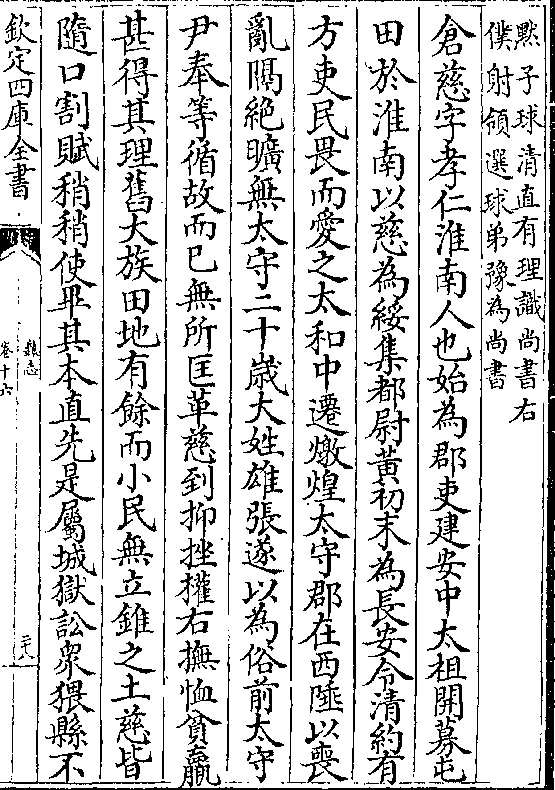 黙子球清直有理識尚書右
僕射領選球弟豫為尚書
倉慈字孝仁淮南人也始為郡吏建安中太祖開募屯
田於淮南以慈為綏集都尉黃初末為長安令清約有
方吏民畏而愛之太和中遷燉煌太守郡在西陲以喪
亂隔絶曠無太守二十歲大姓雄張遂以為俗前太守
尹奉等循故而已無所匡革慈到抑挫權右撫恤貧羸
甚得其理舊大族田地有餘而小民無立錐之土慈皆
隨口割賦稍稍使畢其本直先是屬城獄訟衆猥縣不
欽定四庫全書
魏志
卷十六
二十八